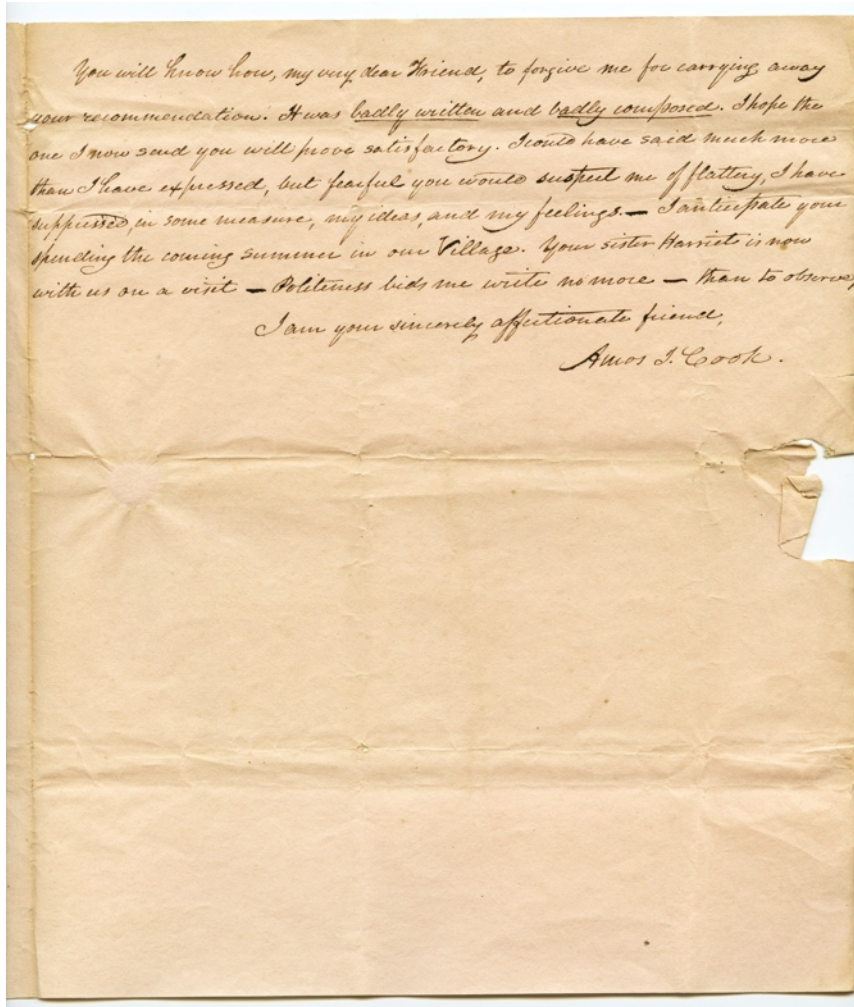 You will know how, my very dear Friend, to forgive me for carrying away
your recommendation. It was badly written and badly composed. I hope the
one I now send you will prove satisfactory. I could have said much more
than I have expressed, but fearful you would suspect me of flattery, I have
suppressed, in some measure, my ideas, and my feelings. — I anticipate your
spending the coming summer in our Village. Your sister Harriet is now
with us on a visit — Politeness bids me write no more — than to observe,
I am your sincerely affectionate friend,
Amos J. Cook.